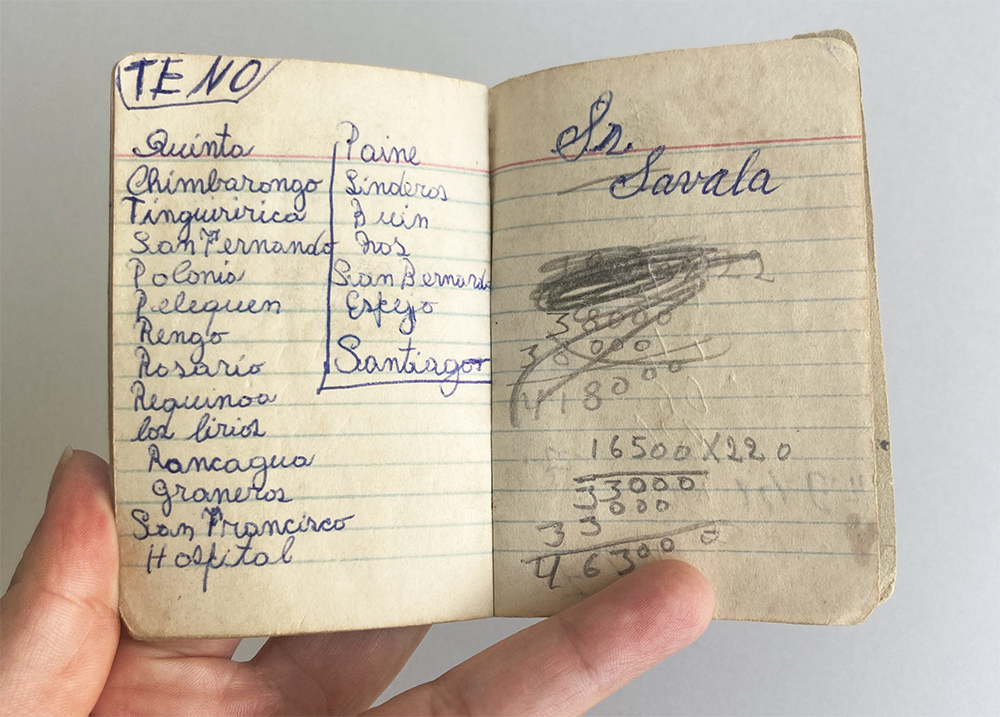 TENO
Quinta
Chimbarongo
Tinguiririca
San Fernando
Polonia
Pelequen
Rengo
Rosario
Requinoa
los lirios
Rancagua
Graneros
San Francisco
Hospital
Paine
Linderos
Buin
Nos
San Bernardo
Espejo
Santiago
Sr.
Savala
38000
38000
418000
16500 X 220
33000
33000
463000